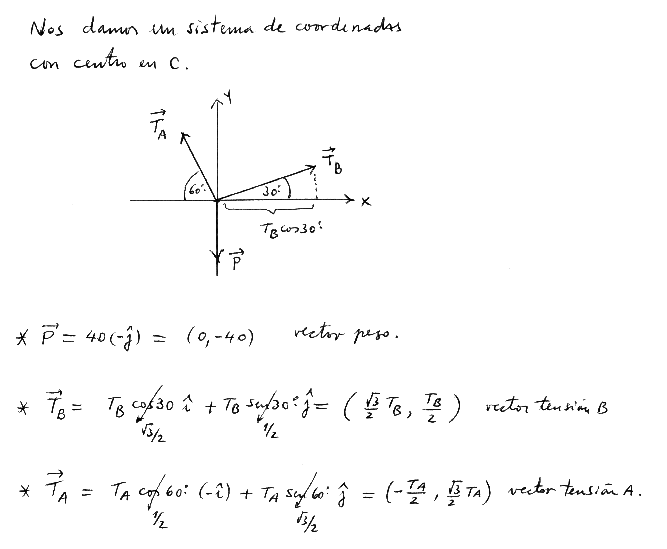 Nos damos un sistema de coordenadas
con centro en C.
Y
T⃗_A
T⃗_B
60º
30º
X
T_B cos30º
P⃗
* P⃗ = 40(-ĵ) = (0,-40) vector peso.
* T⃗_B = T_B cos30 î + T_B sen30º ĵ = (√3/2 T_B, T_B/2) vector tensión B
√3/2 1/2
* T⃗_A = T_A cos60º (-î) + T_A sen60º ĵ = (-T_A/2, √3/2 T_A) vector tensión A.
1/2 √3/2